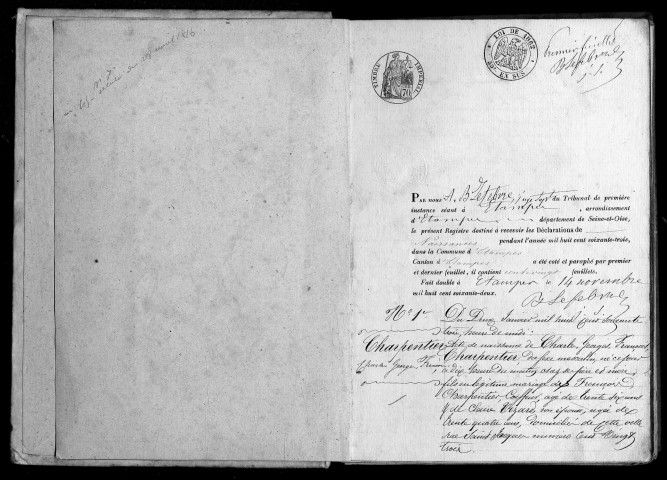 TIMBRE IMPERIAL
70
LOI DE 1862
EN SUS
Premier feuillet
B Lefebvre
PAR nous A. B Lefebvre, du Tribunal de première
instance séant à Etampes, arrondissement
d'Etampes département de Seine-et-Oise,
le présent Registre destiné à recevoir les Déclarations de
Naissances pendant l'année mil huit cent soixante-trois,
dans la Commune d'Etampes
Canton d'Etampes a été coté et paraphé par premier
et dernier feuillet, il contient cent vingt feuillets.
Fait double à Etampes le 14 novembre
mil huit cent soixante-deux.
B Lefebvre
No 1er
Du Deux Janvier mil huit cent soixante
trois, heure de midi :
Charpentier
Charles George François
Acte de naissance de Charles Georges François
Charpentier du sexe masculin, né ce jour
à dix heures du matin chez ses père et mère
fils en légitime mariage de François
Charpentier Coiffeur, agé de trente six ans
& de Claire Vézard son épouse, agée de
trente quatre ans, domiciliés de cette ville
rue Saint Jacques numéro Cent Vingt
trois